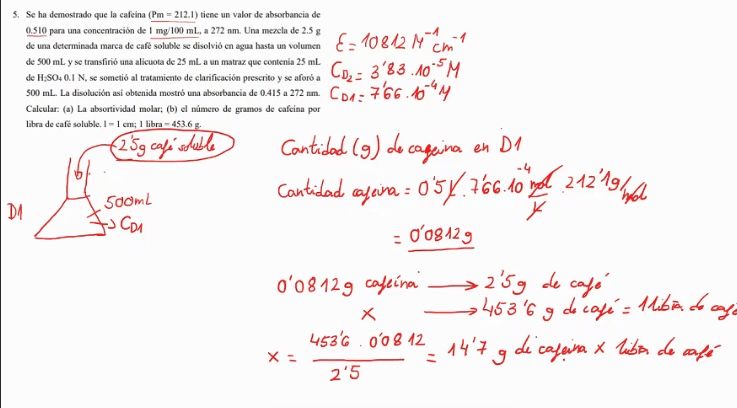 5. Se ha demostrado que la cafeína (Pm = 212.1) tiene un valor de absorbancia de
0.510 para una concentración de 1 mg/100 mL, a 272 nm. Una mezcla de 2.5 g
de una determinada marca de café soluble se disolvió en agua hasta un volumen
de 500 mL y se transfirió una alícuota de 25 mL a un matraz que contenía 25 mL
de H2SO4 0.1 N, se sometió al tratamiento de clarificación prescrito y se aforó a
500 mL. La disolución así obtenida mostró una absorbancia de 0.415 a 272 nm.
Calcular: (a) La absortividad molar; (b) el número de gramos de cafeína por
libra de café soluble. l = 1 cm; 1 libra = 453.6 g.
ε = 10812 M⁻¹ cm⁻¹
CD2 = 3'83 . 10⁻⁵ M
CD1 = 7'66 . 10⁻⁴ M
2'5g café soluble
D1
500mL
CD1
Cantidad (g) de cafeína en D1
Cantidad cafeína = 0'5 L . 7'66 . 10⁻⁴ mol/L . 212'1 g/mol
= 0'0812 g
0'0812g cafeína → 2'5g de café
x → 453'6 g de café = 1 libra de café
x = 453'6 . 0'0812 / 2'5 = 14'7 g de cafeína x libra de café